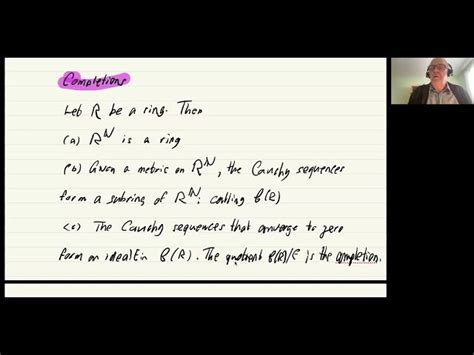 Completions
Let R be a ring. Then
(a) R^ℕ is a ring
(b) Given a metric on R^ℕ, the Cauchy sequences
form a subring of R^ℕ, calling C(R)
(c) The Cauchy sequences that converge to zero
form an ideal in C(R). The quotient C(R)/ is the completion.